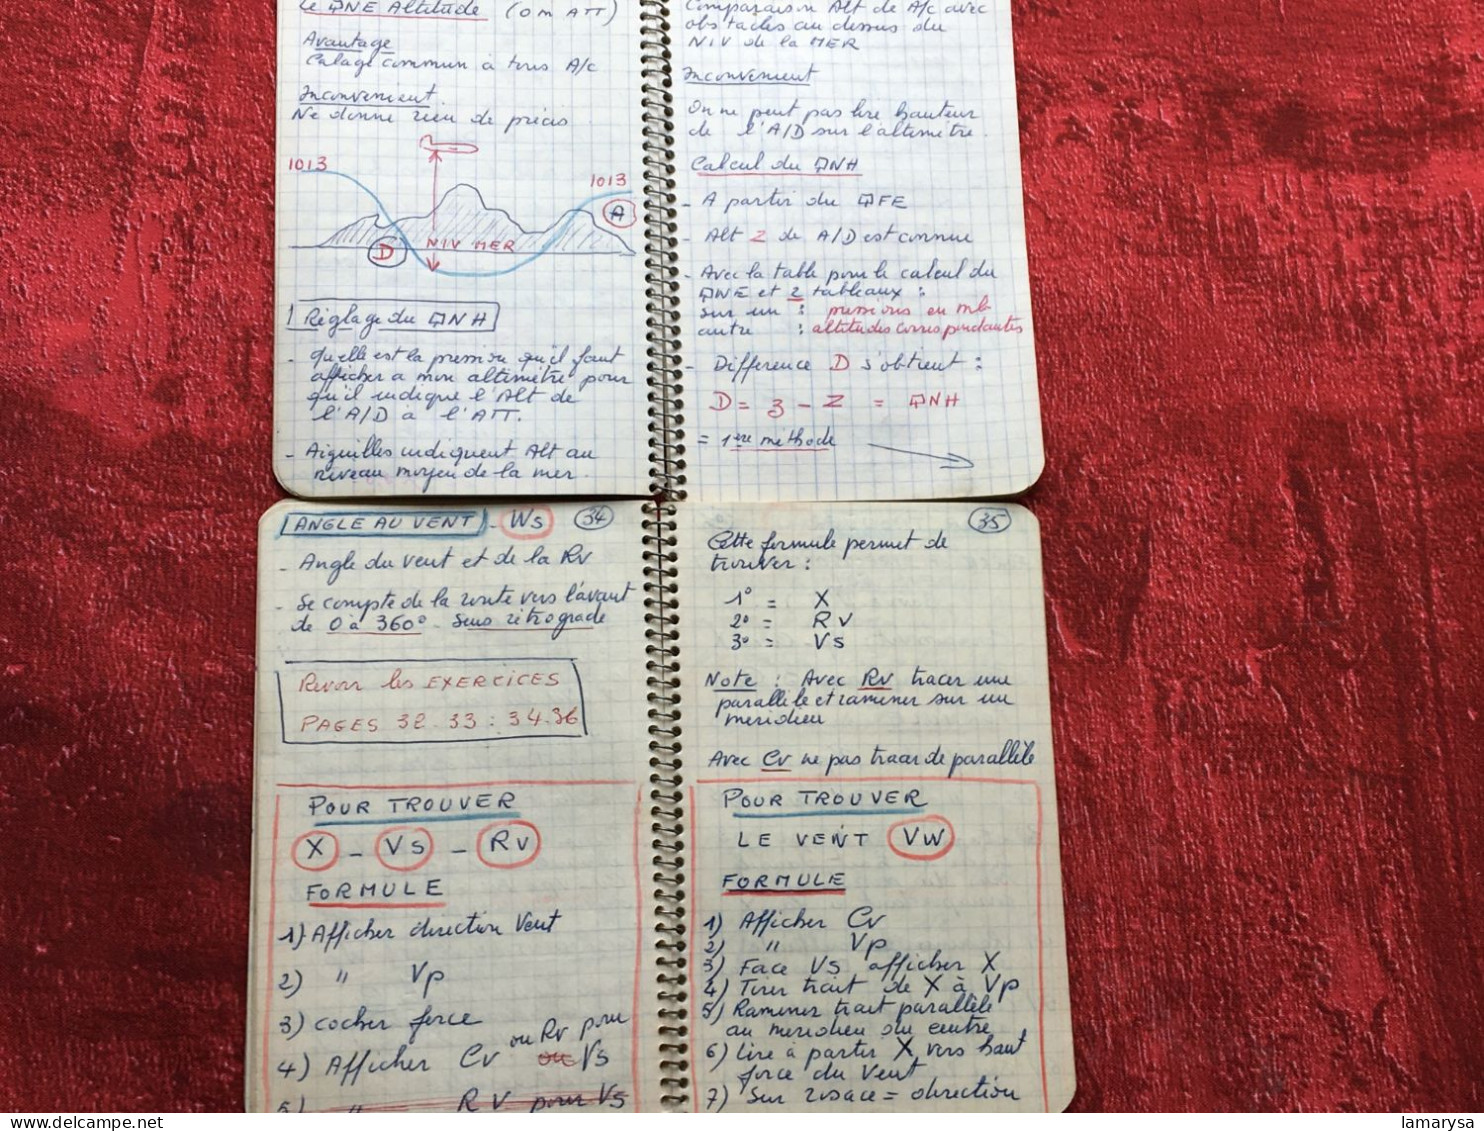 Le QNE Altitude (0 m ATT)
Avantage
Calage commun à tous A/c
Inconvenient
Ne donne rien de précis
1013
1013
A
D
NIV MER
Réglage du QNH
- Quelle est la pression qu'il faut
afficher a mon altimètre pour
qu'il indique l'Alt de
l'A/D à l'ATT.
- Aiguilles indiquent Alt au
niveau moyen de la mer.
Comparaison Alt de A/c avec
obstacles au dessus du
NIV de la MER
Inconvenient
On ne peut pas lire hauteur
de l'A/D sur l'altimètre.
Calcul du QNH
- A partir du QFE
- Alt Z de A/D est connue
- Avec la table pour le calcul du
QNE et 2 tableaux :
sur un : pressions en mb
autre : altitudes correspondantes
- Difference D s'obtient :
D = 3 - Z = QNH
= 1ere méthode
ANGLE AU VENT - Ws 34
- Angle du vent et de la Rv
- Se compte de la route vers l'avant
de 0 à 360° - Sens rétrograde
Revoir les EXERCICES
PAGES 32.33 : 34.36
POUR TROUVER
X - Vs - Rv
FORMULE
1) Afficher direction Vent
2) " Vp
3) cocher force
4) Afficher Cv ou Rv pour
ou Vs
5) " RV pour Vs
35
Cette formule permet de
trouver :
1° = X
2° = RV
3° = Vs
Note : Avec Rv tracer une
parallèle et ramener sur un
meridien
Avec Cv ne pas tracer de parallèle
POUR TROUVER
LE VENT Vw
FORMULE
1) Afficher Cv
2) " Vp
3) Face Vs afficher X
4) Tirer trait de X à Vp
5) Ramener trait parallèle
au meridien du centre
6) Lire à partir X vers haut
force du Vent
7) Sur rosace = direction
lamarysa